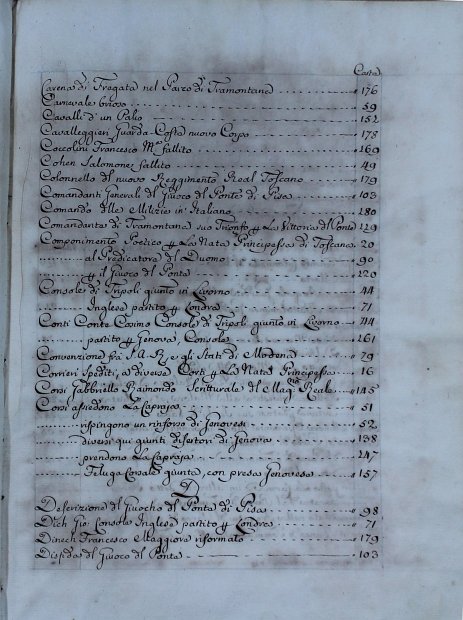 Carta
Carena di Fregata nel Parco di Tramontana 176
Carnevale brioso 59
Cavalli d'un Palio 152
Cavalleggieri Guarda-Costa nuovo Corpo 178
Ceccolini Francesco M.ª fallito 169
Cohen Salomone fallito 49
Colonnello del nuovo Reggimento Real Toscano 179
Comandanti Generali del Giuoco del Ponte di Pisa 103
Comando delle Milizie in Italiano 180
Comandante di Tramontana suo Trionfo p La Vittoria del Ponte 129
Componimento Poetico p La Nata Principessa di Toscana 20
al Predicatore del Duomo 90
p il Giuoco del Ponte 120
Console di Tripoli giunto in Livorno 44
Inglese partito p Londra 71
Conti Conte Cosimo Console di Tripoli giunto in Livorno 44
partito p Genova, Console 161
Convenzione fra S. A. R. e gli Stati di Modena 79
Corrieri Spediti, a diverse Corti p La Nata Principessa 16
Corsi Gabbriello Raimondo Scritturale del Mag.no Reale 145
Corsi assediono La Capraja 51
rispingono un rinforzo di Genovesi 52
diversi qui giunti disertori di Genova 138
prendono La Capraja 147
Feluga Corsale giunta, con presa Genovesa 157
D
Descrizione del Giuocho del Ponte di Pisa 98
Dich Gio: Console Inglese partito p Londra 71
Dinech Francesco Maggiore riformato 179
Disfida del Giuoco del Ponte 103